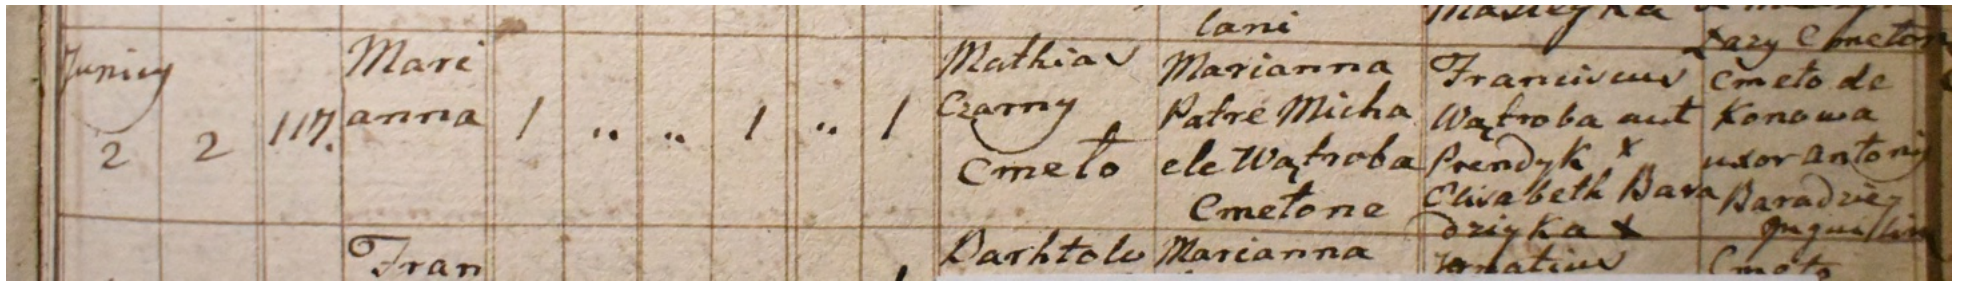 lani
Maslejka
Lazy Cmeton
Juniuy
2
2
117.
Mari
anna
1 " " 1 " 1
Mathias
Czarny
Cmeto
Marianna
Patre Micha
ele Wątroba
Cmetone
Franciscus
Wątroba aut
Prendyk x
Elisabeth Bara
dziyka x
Cmeto de
Konowa
uxor Antonij
Baradziej
Inquilin
Fran
Barhtolo
Marianna
Ignatius
Cmeto